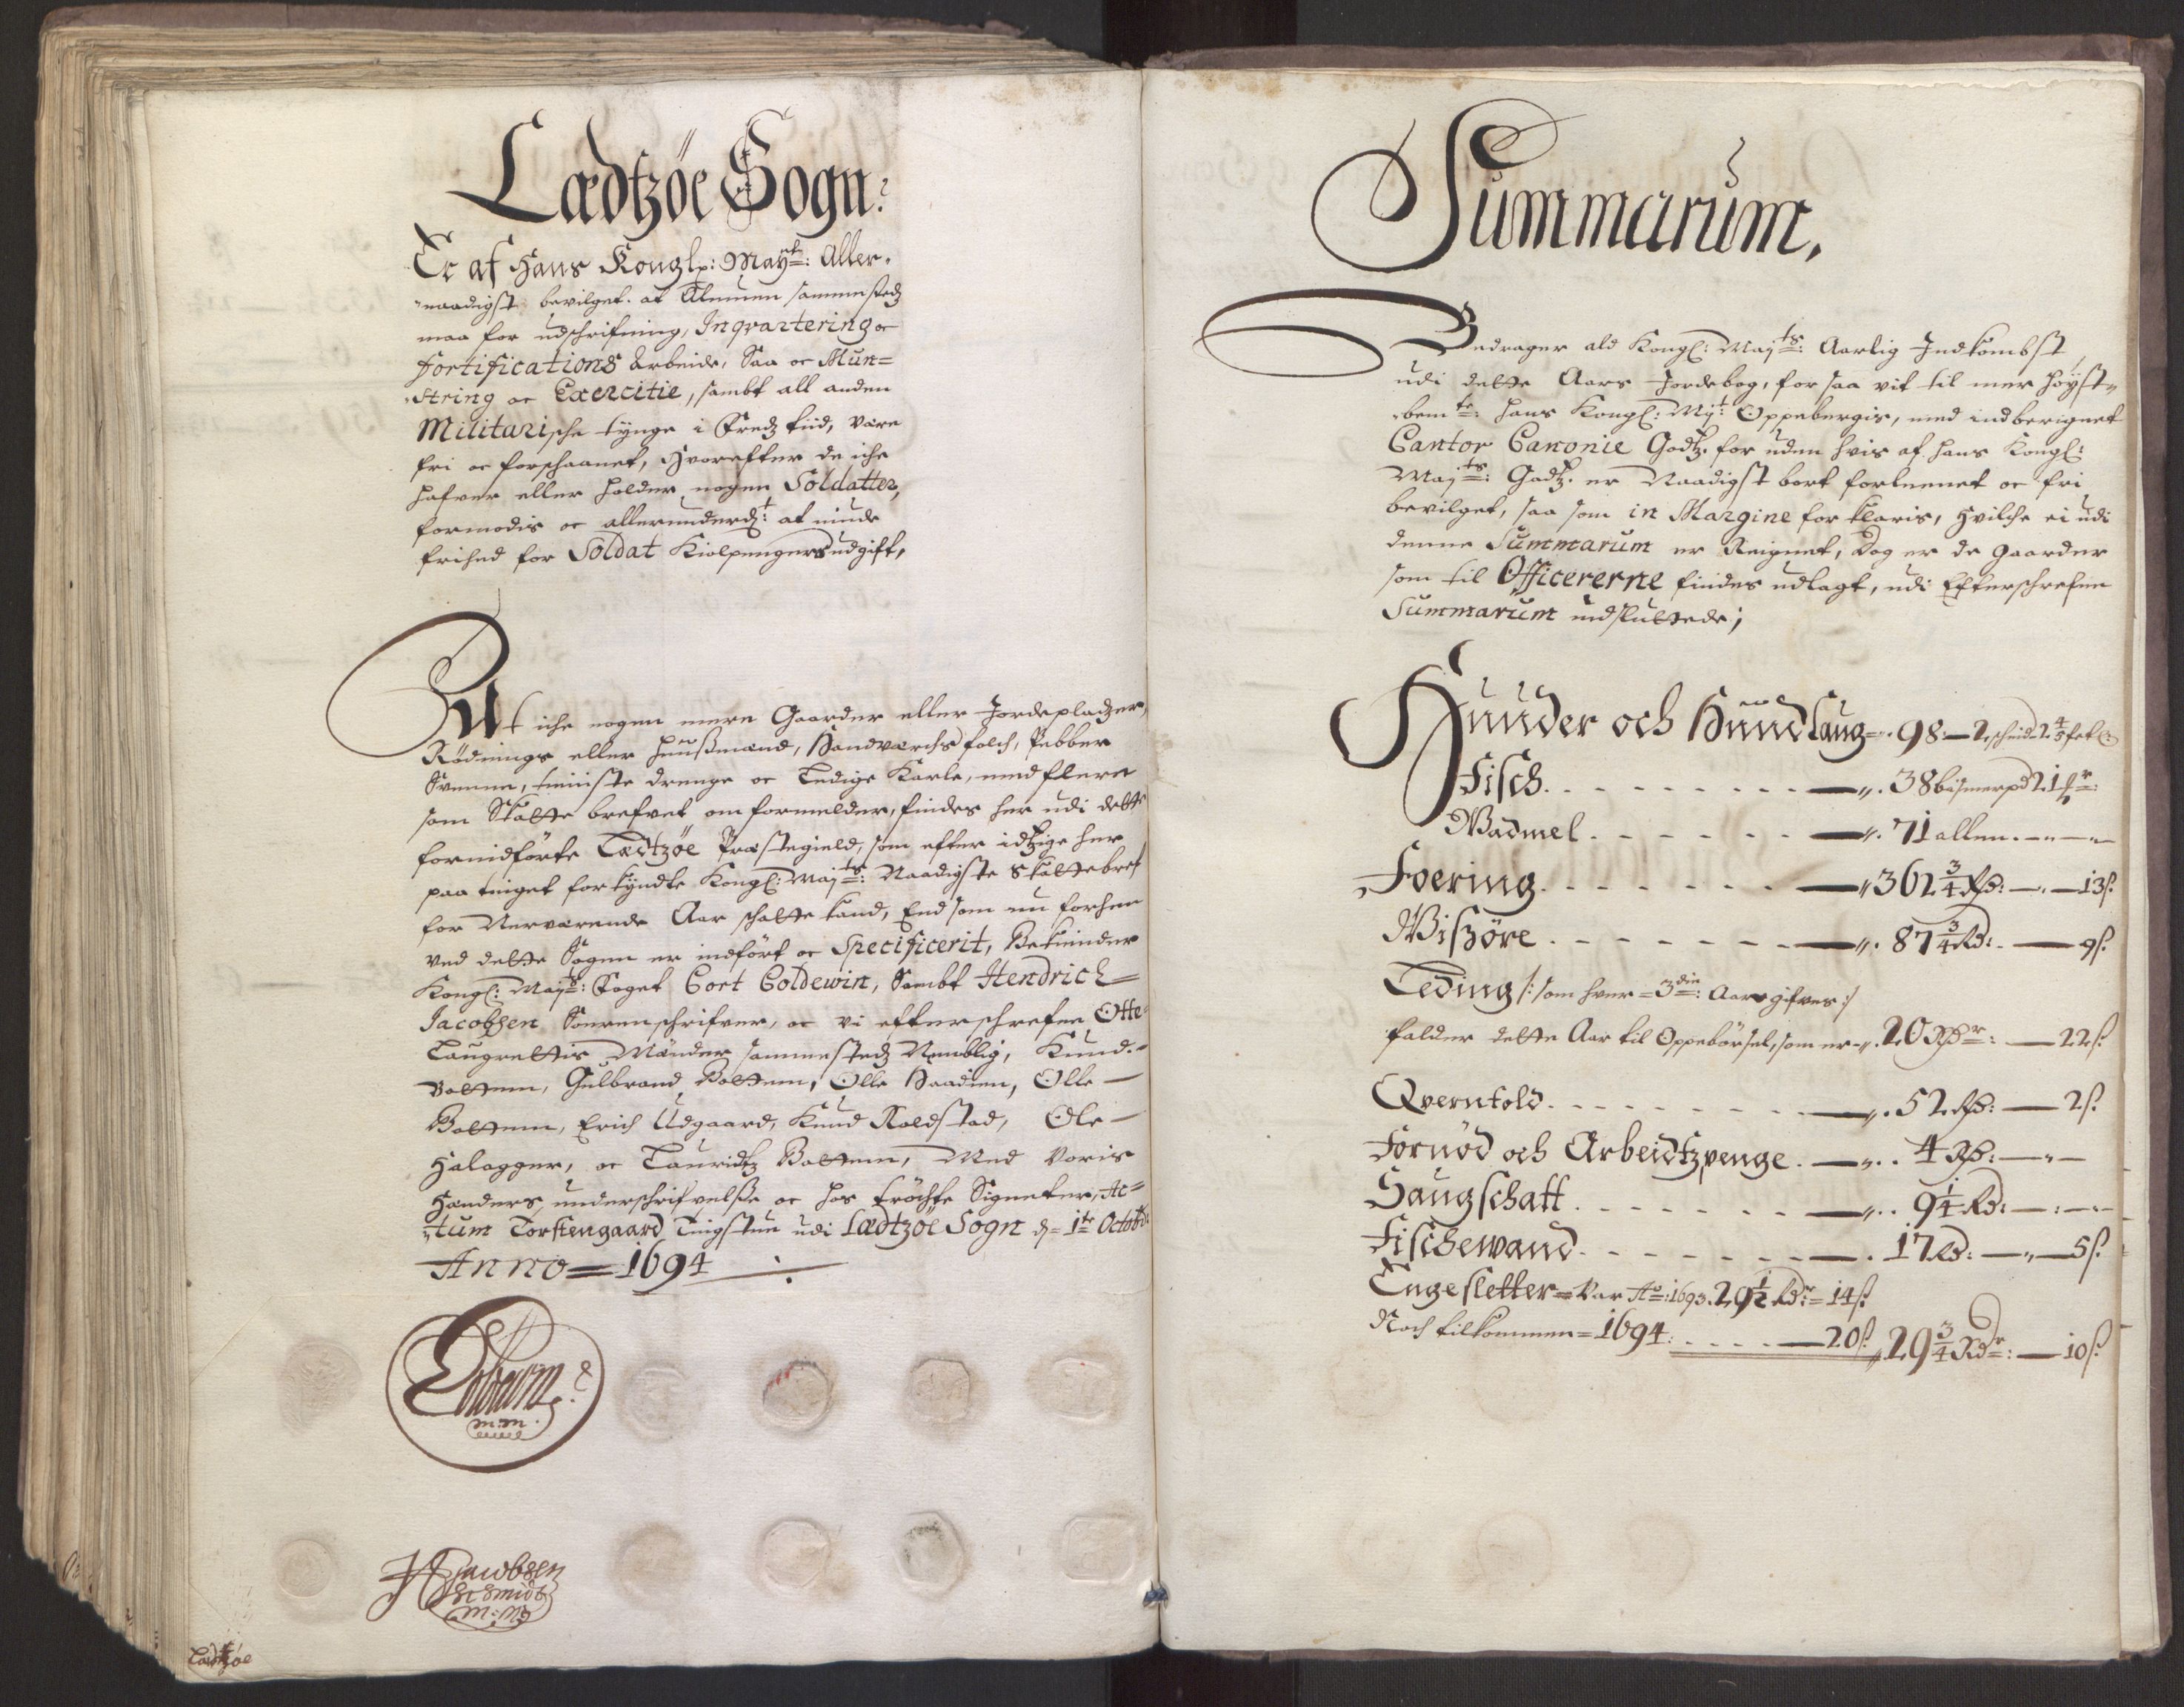 Lædtzöe Sogn:
Er af Hans Konglx: Mayts: Aller-
naadigst bevilget. at Almuen sammestedz
maa for udschrifning, Inqvartering oc
Fortifications Arbeide, Saa oc Mun=
string oc Exercitie, sambt all anden
Militarische tynge i Fredz tiid, være
fri oc forschaanet, Hvorefter de iche
hafver eller holder nogen Soldatter,
formodis oc allerunderdt: at niude
frihed for Soldat Kiolpengers udgift,
At iche nogen mere Gaarder eller Jordepladzer,
Rödnings eller Huußmænd, Handværchsfolch, Pebber
Svenne, tieniste drenge oc Ledige Karle, med flere
som Skatte brefvet om formelder, findes her udi dette
fornidförte Lædtzöe Præstegield, som efter idtzige her
paa tinget forkyndte Kongl: Mayts: Naadigste Skattebref
for Nerværende Aar schatte kand, End som nu forhen
ved dette Sogen er indfört oc Specificerit, Bekiender
Kongl: Mayts: Foget Cort Coldewin, Sambt Hendrich
Jacobsen Sorenschrifver, oc vi efterschrefne Otte
Laugrettis Mænder sammestedz Nemblig, Knud
Bottem, Gulbrand Bottem, Olle Haadien, Olle
Bottem, Erich Udgaard, Knud Roldstad, Ole
Halagger, oc Lauridtz Bottem, Med Voris
Hænders underschrifvelße oc hos tröchte Signeter, Ac=
tum Torstengaard Tingstue udi Lædtzöe Sogn d= 1te Octobr:
Anno=1694
Coldewin
m:m.
HJacobsen
Schmidt
m:m
Lædtzöe
Summarum,
Bedrager ald Kongl: Mayts: Aarlig Indkombst
udi dette Aars Jordebog, for saa vit til mer höyst
bemte: Hans Kongl: Myt: Oppebergis, med indberignet
Cantor Canonie Godtz. for uden hvis af Hans Kongl:
Mayts: Godtz. er Naadigst bort forlenet oc fri
bevilget, saa som in Margine forklaris, Hvilche ei udi
denne Summarum er Reignet, Dog er de Gaarder
som til Officererne findes udlagt, udi Efterschrefne
Summarum indsluttede;
Huuder och Huudlaug=. 98:— 2 schind 2 4/5 fet
Fisch. — 38 bismerpd 21 mr:
Wadmel. — 71 allen.
Foering. — 362 3/4 Rd: — 13 ß.
Wißöre. — 87 3/4 Rd: — 9 ß.
Leding /: som hver= 3die: Aar gifves :/
falder dette Aar til Oppebörsel, som er 20 Rdr: — 22 ß.
Qverntold. — 52 Rd: — 2 ß.
Fornöd och Arbeidtzpenge. — 4 Rd: —
Haugschatt. — 9 1/4 Rd: —
Fischewand. — 17 Rd: — 5 ß.
Engesletter= Var Ao: 1693. 29 1/2 Rdr:= 14 ß.
Noch tilkommen= 1694: — 20 ß. 29 3/4 Rdr: — 10 ß.